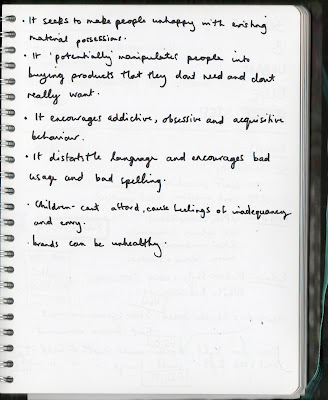 • It seeks to make people unhappy with existing
material possessions.
• It 'potentially' manipulates people into
buying products that they dont need and dont
really want.
• It encourages addictive, obsessive and acquisitive
behaviour.
• It distorts the language and encourages bad
usage and bad spelling.
• Children - cant afford, cause feelings of inadequancy
and envy.
• brands can be unhealthy.